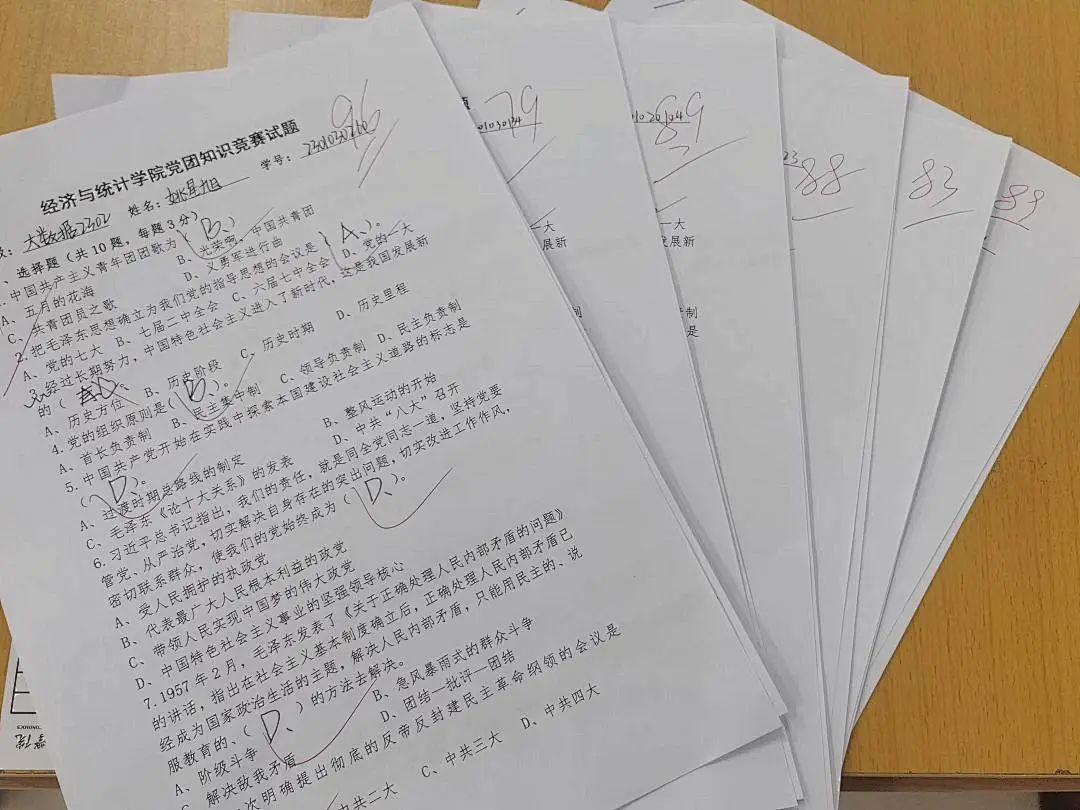 经济与统计学院党团知识竞赛试题
96
大数据2302 姓名： 学号：
、选择题（共10题，每题3分）
中国共产主义青年团团歌为（B、）
A、五月的花海 B、光荣啊，中国共青团
C、共青团员之歌 D、义勇军进行曲
2.把毛泽东思想确立为我们党的指导思想的会议是（A、）。
A、党的七大 B、七届二中全会 C、六届七中全会 D、党的一大
3.经过长期努力，中国特色社会主义进入了新时代，这是我国发展新
的（ ）。
A、历史方位 B、历史阶段 C、历史时期 D、历史里程
4.党的组织原则是（ ）。
A、首长负责制 B、民主集中制 C、领导负责制 D、民主负责制
5.中国共产党开始在实践中探索本国建设社会主义道路的标志是
（D、）。
A、过渡时期总路线的制定 B、整风运动的开始
C、毛泽东《论十大关系》的发表 D、中共“八大”召开
6.习近平总书记指出，我们的责任，就是同全党同志一道，坚持党要
管党、从严治党，切实解决自身存在的突出问题，切实改进工作作风，
密切联系群众，使我们的党始终成为（D、）。
A、受人民拥护的执政党
B、代表最广大人民根本利益的政党
C、带领人民实现中国梦的伟大政党
D、中国特色社会主义事业的坚强领导核心
7.1957年2月，毛泽东发表了《关于正确处理人民内部矛盾的问题》
的讲话，指出在社会主义基本制度确立后，正确处理人民内部矛盾已
经成为国家政治生活的主题，解决人民内部矛盾，只能用民主的、说
服教育的、（D、）的方法去解决。
A、阶级斗争 B、急风暴雨式的群众斗争
解决敌我矛盾 D、团结—批评—团结
次明确提出彻底的反帝反封建民主革命纲领的会议是
中共二大 C、中共三大 D、中共四大
79
一大
发展新
制
是
89
一大
发展新
制
是
88
83